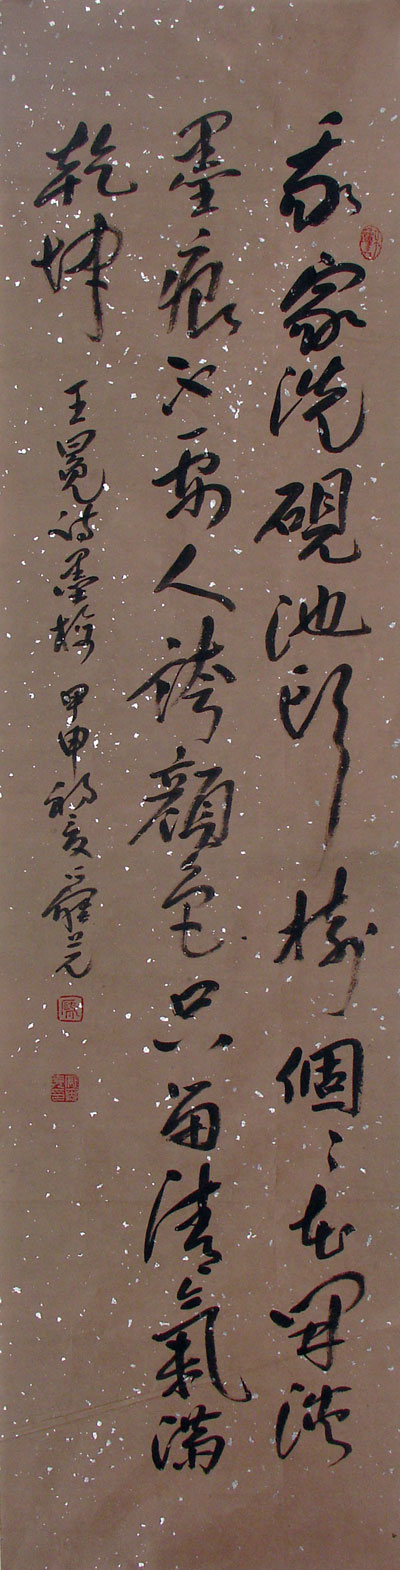 我家洗硯池頭樹個々花開淡
墨痕不要人誇顏色只留清氣滿
乾坤
王冕詩墨梅 甲申初夏